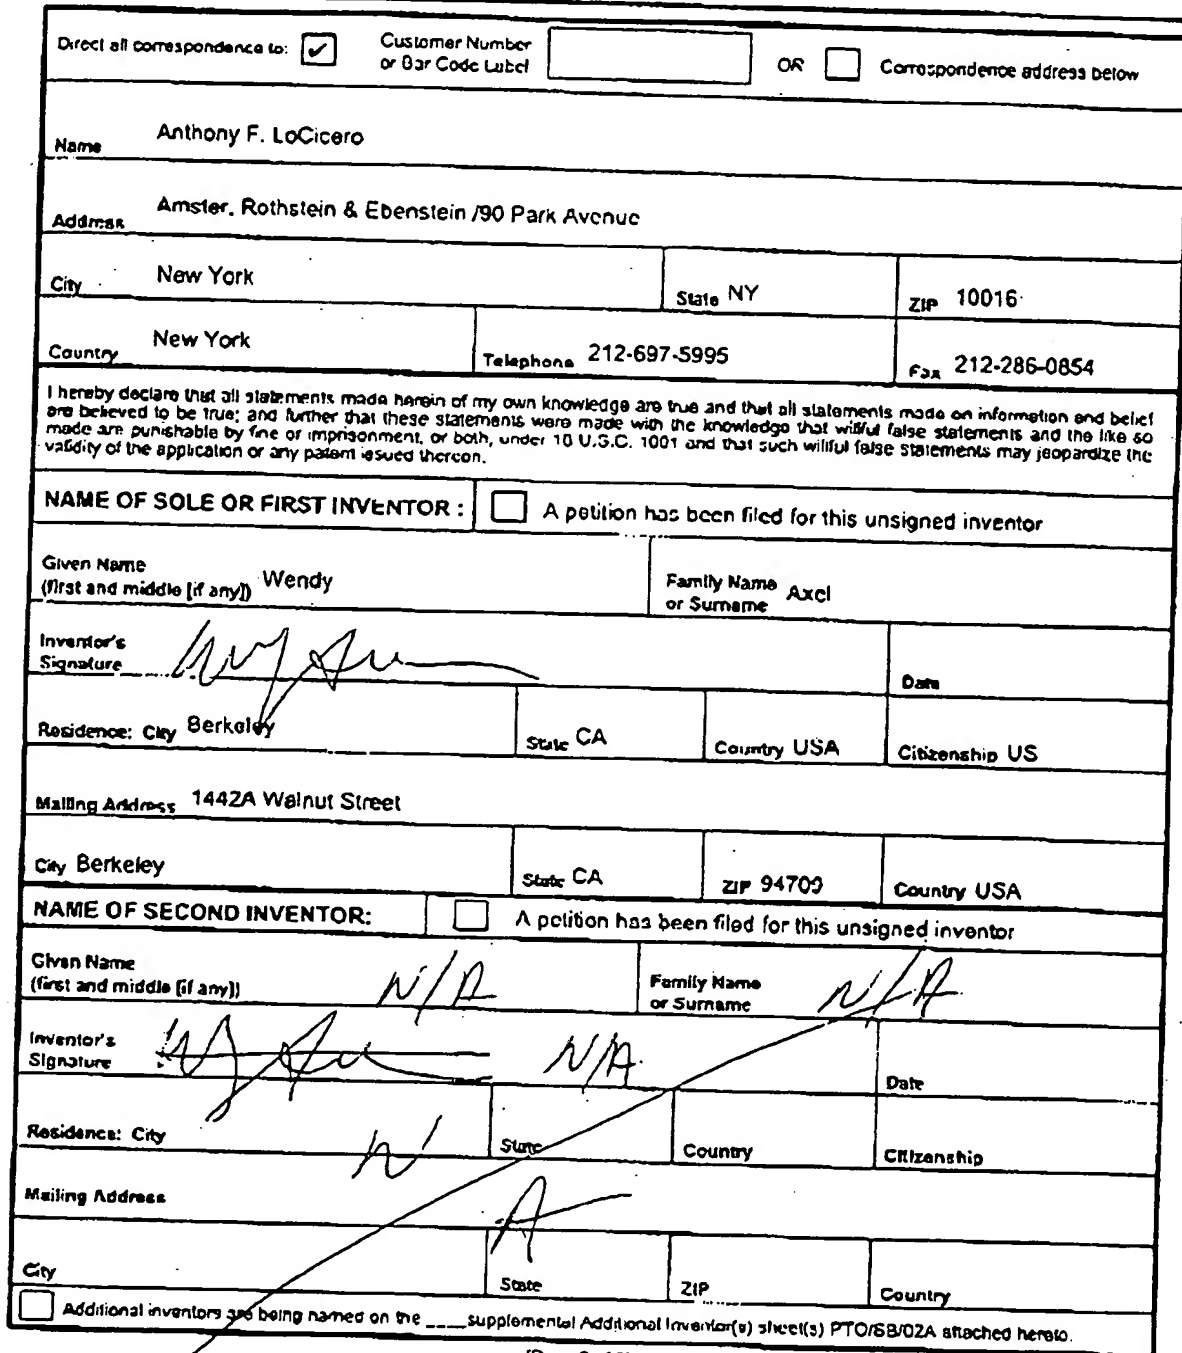 Direct all correspondence to: ✔ Customer Number or Bar Code Label OR Correspondence address below
Name Anthony F. LoCicero
Address Amster, Rothstein & Ebenstein /90 Park Avenue
City New York State NY ZIP 10016
Country New York Telephone 212-697-5995 Fax 212-286-0854
I hereby declare that all statements made herein of my own knowledge are true and that all statements made on information and belief
are believed to be true; and further that these statements were made with the knowledge that willful false statements and the like so
made are punishable by fine or imprisonment, or both, under 18 U.S.C. 1001 and that such willful false statements may jeopardize the
validity of the application or any patent issued thereon.
NAME OF SOLE OR FIRST INVENTOR : A petition has been filed for this unsigned inventor
Given Name (first and middle [if any]) Wendy Family Name or Surname Axel
Inventor's Signature Date
Residence: City Berkeley State CA Country USA Citizenship US
Mailing Address 1442A Walnut Street
City Berkeley State CA ZIP 94709 Country USA
NAME OF SECOND INVENTOR: A petition has been filed for this unsigned inventor
Given Name (first and middle [if any]) N/A Family Name or Surname N/A
Inventor's Signature N/A Date
Residence: City N/ State Country Citizenship
Mailing Address A
City State ZIP Country
Additional inventors are being named on the ____supplemental Additional Inventor(s) sheet(s) PTO/SB/02A attached hereto.